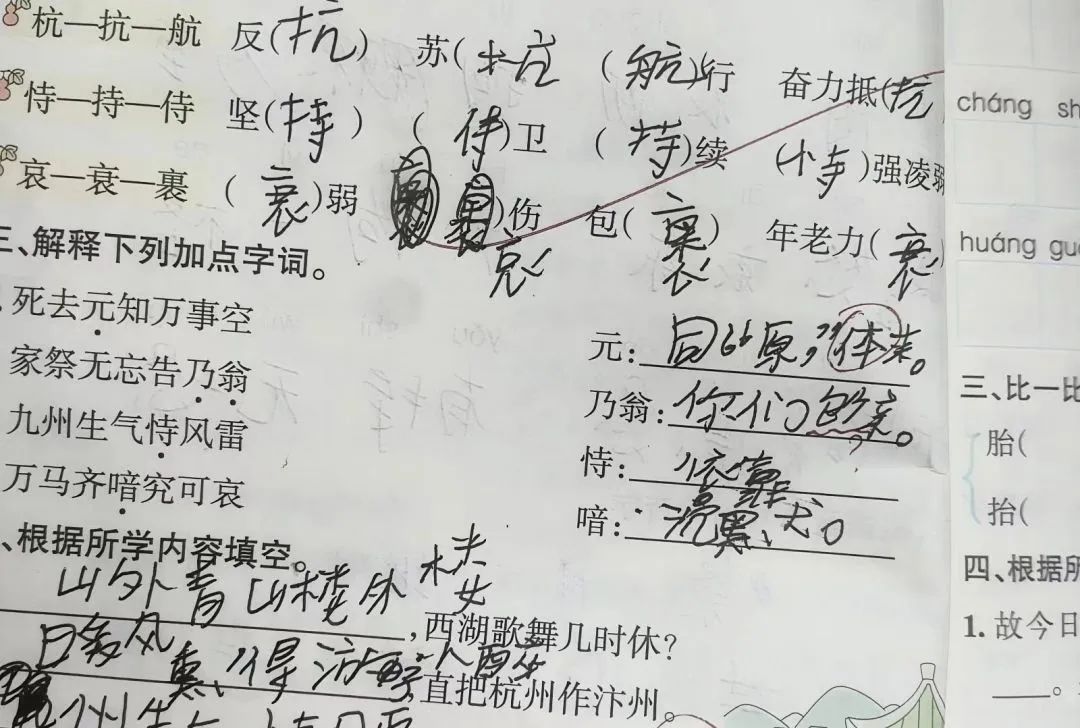 杭—抗—航 反(抗) 苏(杭) (航)行 奋力抵(抗
恃—持—侍 坚(持) (侍)卫 (持)续 (恃)强凌弱
哀—衰—裹 (衰)弱 )伤 包(裹) 年老力(衰)
哀
三、解释下列加点字词。
死去元知万事空 元:同“原”,体来。
家祭无忘告乃翁 乃翁:你们的父亲。
九州生气恃风雷 恃:依靠
万马齐喑究可哀 喑:
、根据所学内容填空。
山外青山楼外楼,西湖歌舞几时休?
日暖风熏得游人醉 直把杭州作汴州。
九州生气恃风雷
cháng sh
huáng gu
三、比一比
胎(
抬(
四、根据所
1. 故今日
。